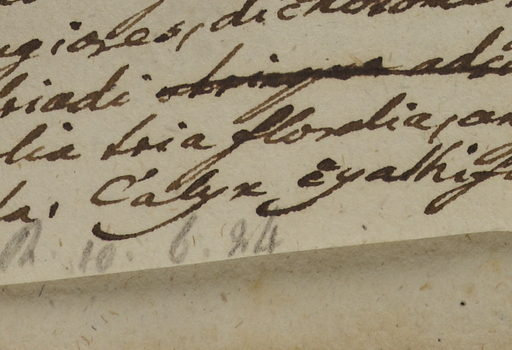 giores, dichotom
riadi utrinque
lia tria floralia, an
la, Calyx Cyathif
R. 10. 6. 24